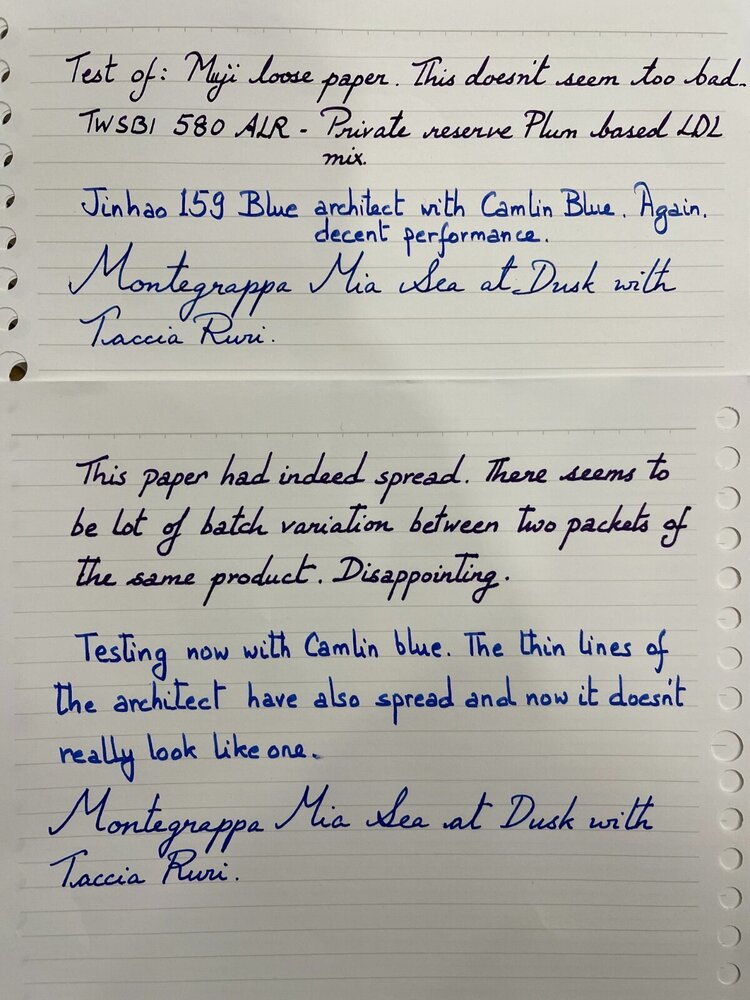 Test of: Muji loose paper. This doesn't seem too bad.
TWSBI 580 ALR - Private reserve Plum based LDL
mix.
Jinhao 159 Blue architect with Camlin Blue. Again.
decent performance.
Montegrappa Mia Sea at Dusk with
Taccia Ruri.
This paper had indeed spread. There seems to
be lot of batch variation between two packets of
the same product. Disappointing.
Testing now with Camlin blue. The thin lines of
the architect have also spread and now it doesn't
really look like one.
Montegrappa Mia Sea at Dusk with
Taccia Ruri.